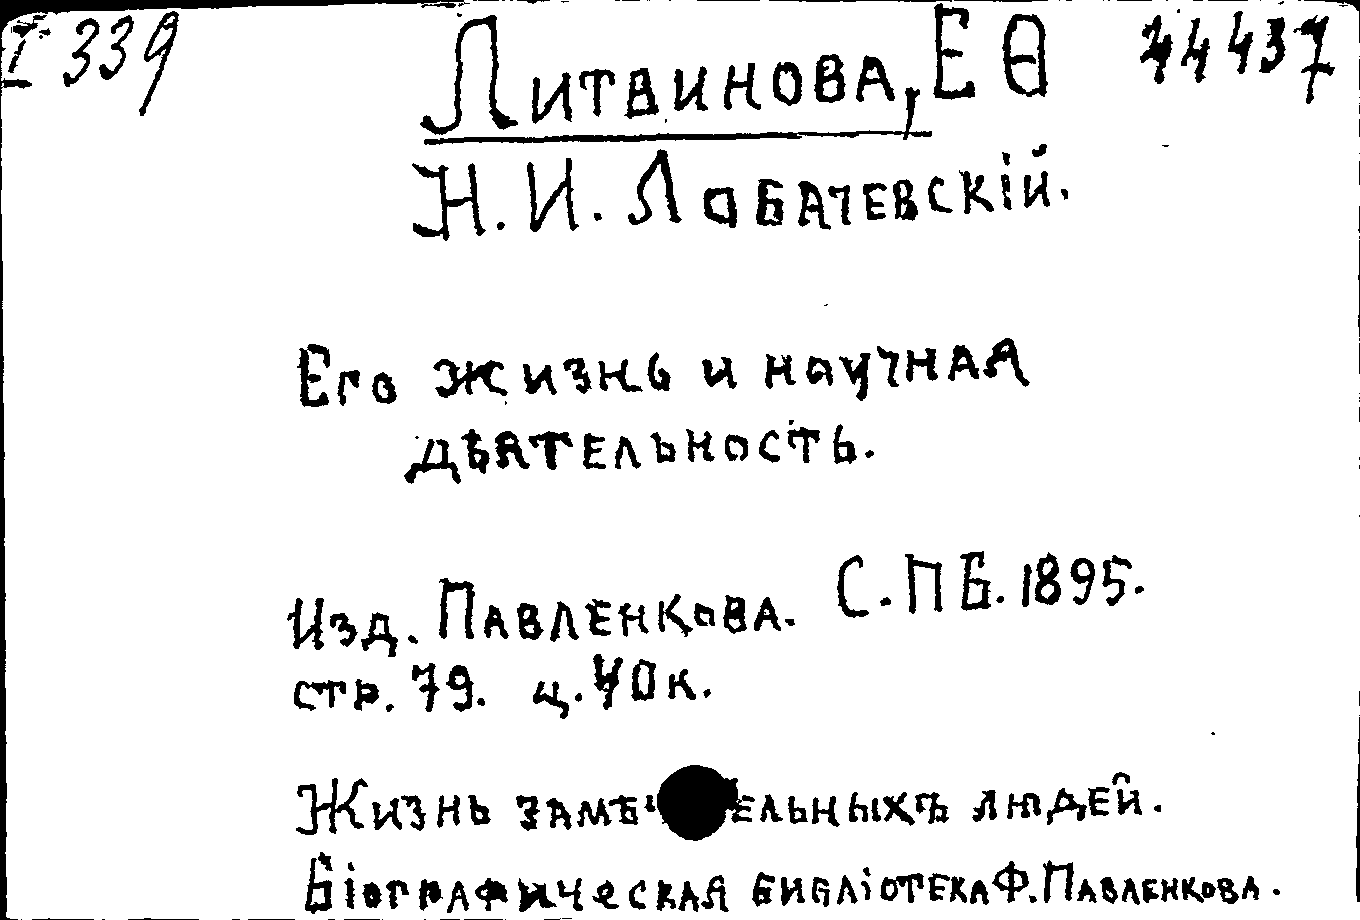 I 339 Литвинова, Е Ѳ 44437
Н. И. Лобачевскій.
Его жизнь и научная
дѣятельность.
Изд. Павленкова. С. ПБ. 1895.
стр. 79. ц. 40 к.
Жизнь людей.
Біографическая библіотека Ф. Павленкова.